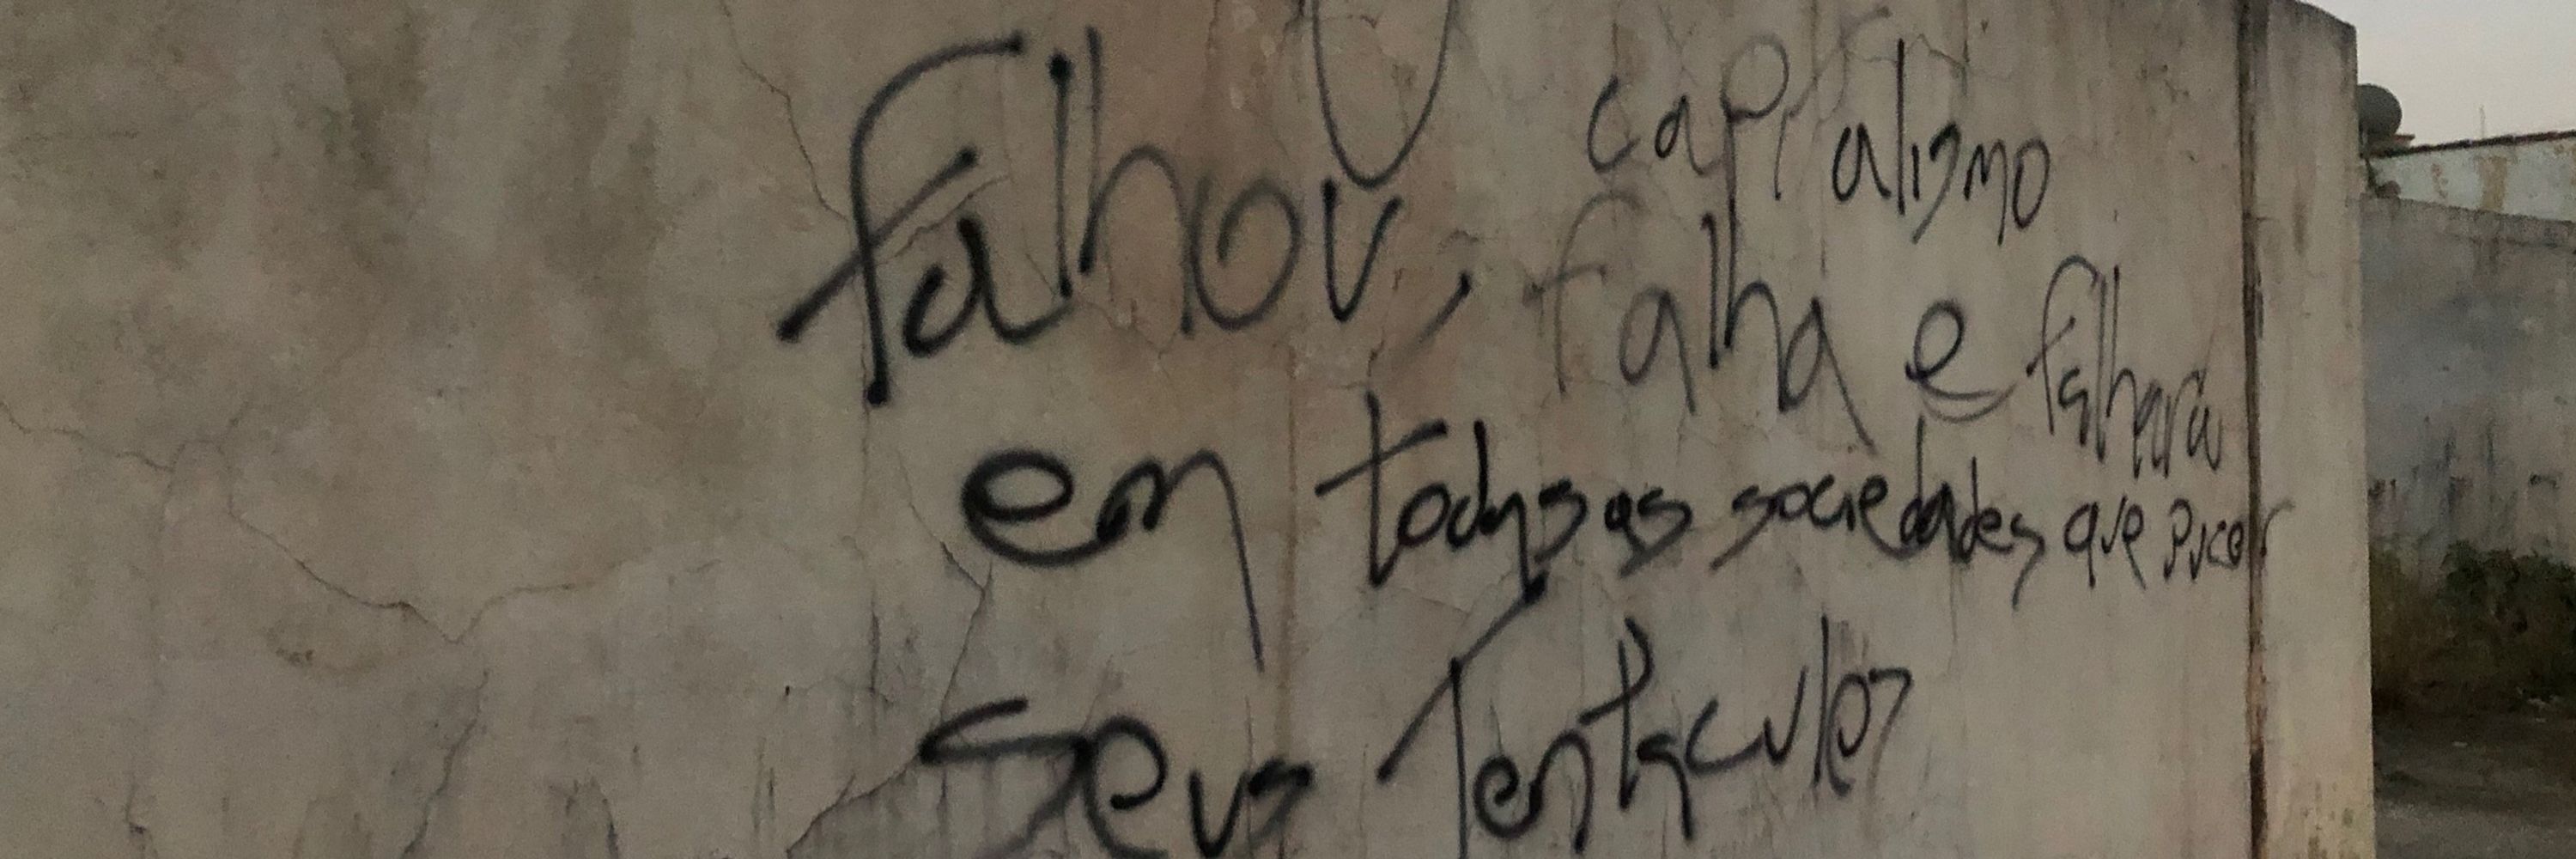 capitalismo
falhou, falha e falhará
em todas as sociedades que
seus Tentaculos